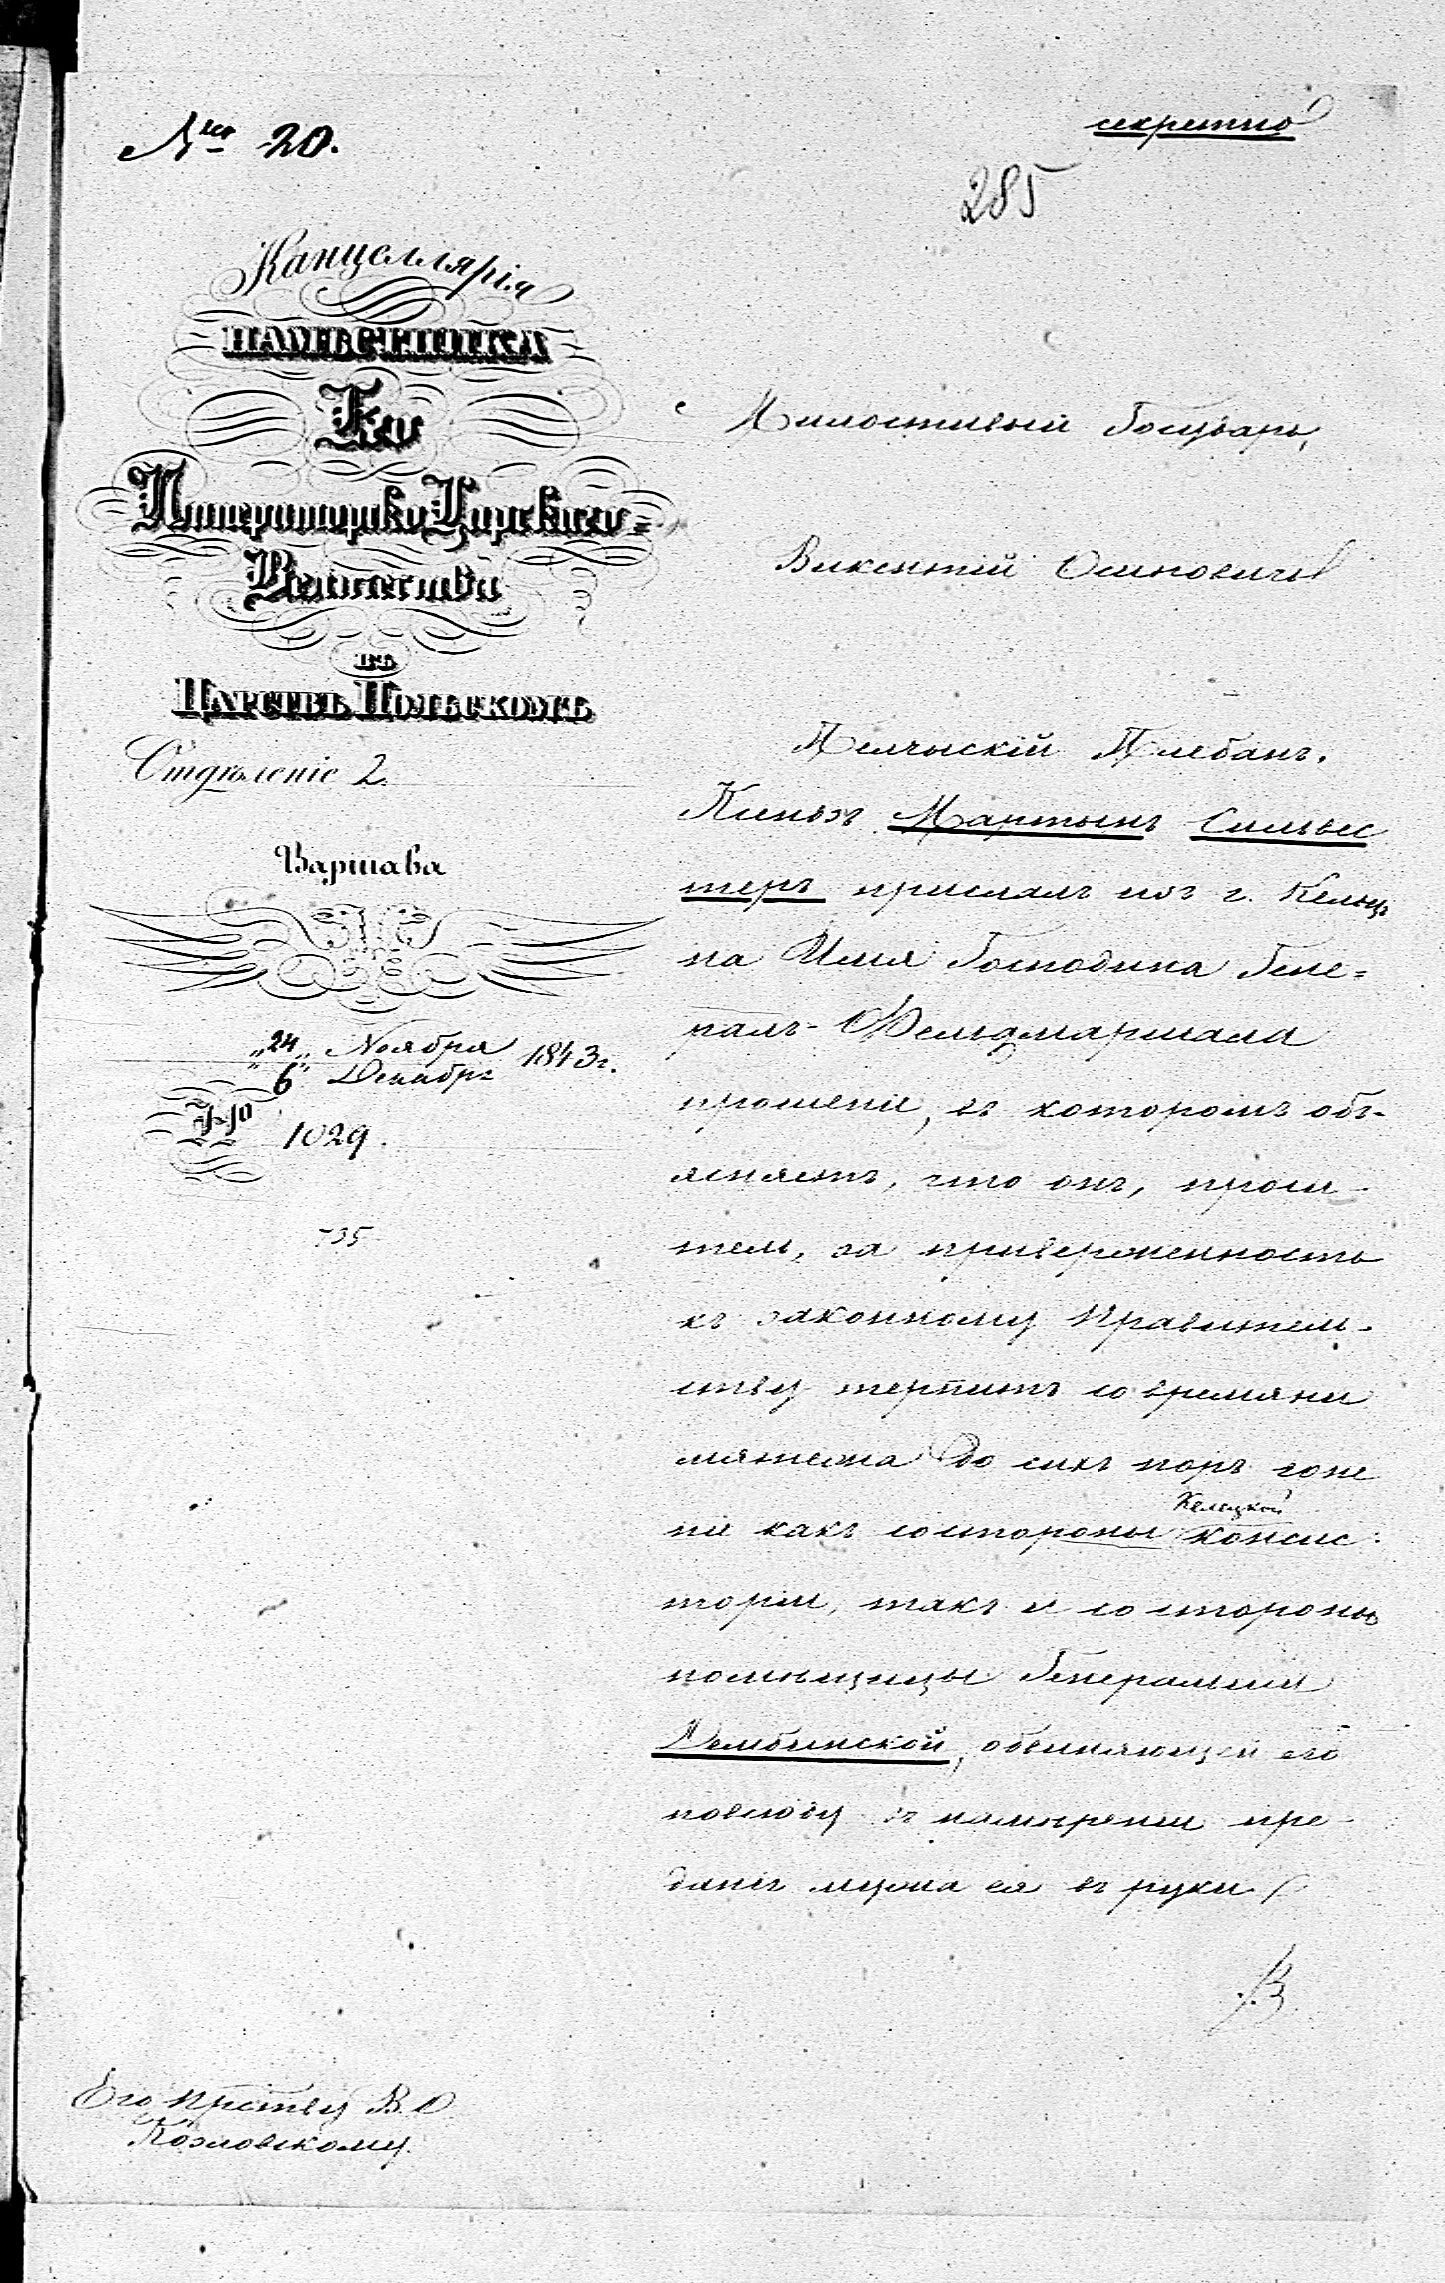 № 20.
секретно
285
Канцеллярія
НАМѢСТНИКА
Его
Императорско Царскаго
Величества
въ
Царствѣ Польскомъ
Отдѣленіе 2.
Варшава
„24„ Ноября
„6„ Декабря 1843 г.
№ 1029.
735
Милостивый Государь,
Викентій Осиповичъ
Плебанъ.
Ксіондзъ Мартынъ Сильвес
теръ прислалъ изъ г. Кельцъ
на Имя Господина Гене=
ралъ-Фельдмаршала
прошеніе, въ которомъ объ-
ясняетъ, что онъ, проси-
тель, за приверженность
къ законному Правитель-
ству терпитъ со времяни
мятежа до сихъ поръ гоне
нія какъ состороны Келецкой Консис-
торіи, такъ и со стороны
помѣщицы Генеральши
Дембинской, обвиняющей его
повсюду въ намѣреніи пре-
дать мужа ея въ руки
Его Прству В. О
Козловскому.